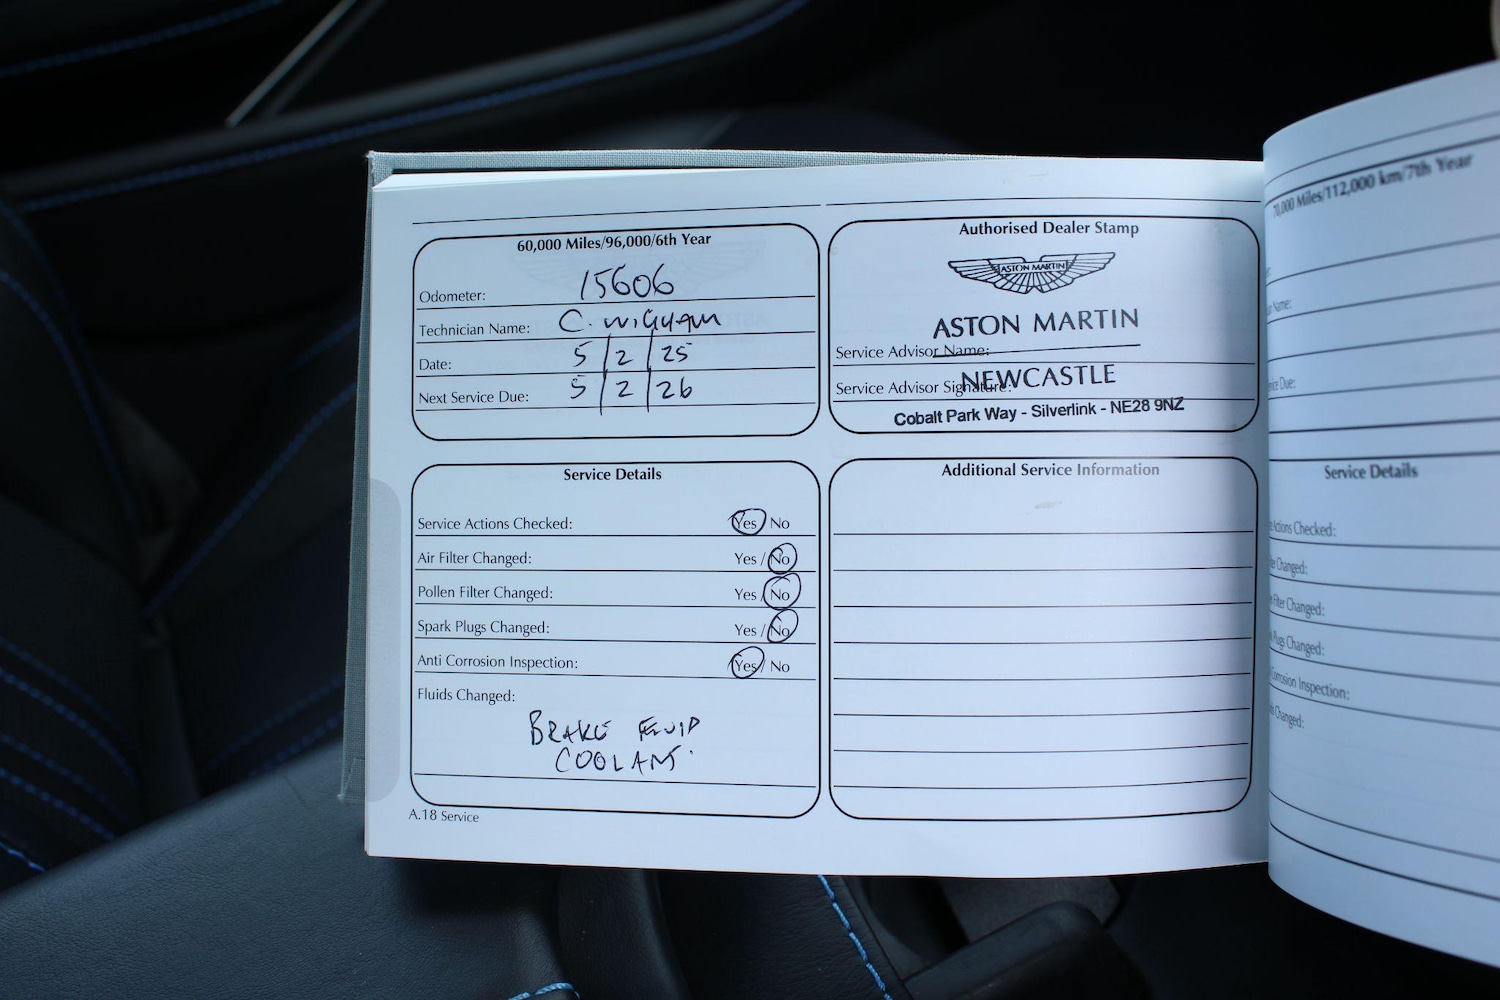 60,000 Miles/96,000/6th Year
Odometer: 15606
Technician Name: C. William
Date: 5/2/25
Next Service Due: 5/2/26
Authorised Dealer Stamp
ASTON MARTIN
ASTON MARTIN
Service Advisor Name:
NEWCASTLE
Service Advisor Signature:
Cobalt Park Way - Silverlink - NE28 9NZ
Service Details
Service Actions Checked: Yes / No
Air Filter Changed: Yes / No
Pollen Filter Changed: Yes / No
Spark Plugs Changed: Yes / No
Anti Corrosion Inspection: Yes / No
Fluids Changed:
BRAKE FLUID
COOLANT.
Additional Service Information
A.18 Service
70,000 Miles/112,000 km/7th Year
Name:
Due:
Service Details
Actions Checked:
Changed:
Filter Changed:
Plugs Changed:
Corrosion Inspection:
Changed: